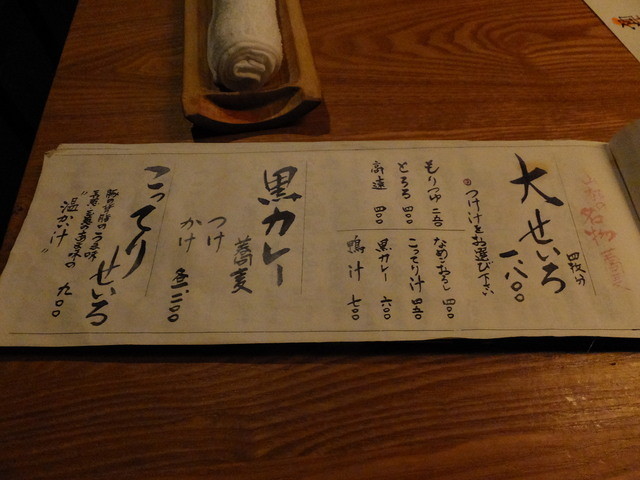 名物 蕎麦
大せいろ
四枚分
一、八〇〇
つけ汁をお選び下さい
もりつゆ 二五〇
とろろ 四〇〇
高遠 四〇〇
なめこおろし 四〇〇
こってり汁 四五〇
黒カレー 六〇〇
鴨汁 七〇〇
黒カレー
蕎麦
つけ
かけ
各一、二〇〇
こってりせいろ
"温かい汁"
九〇〇